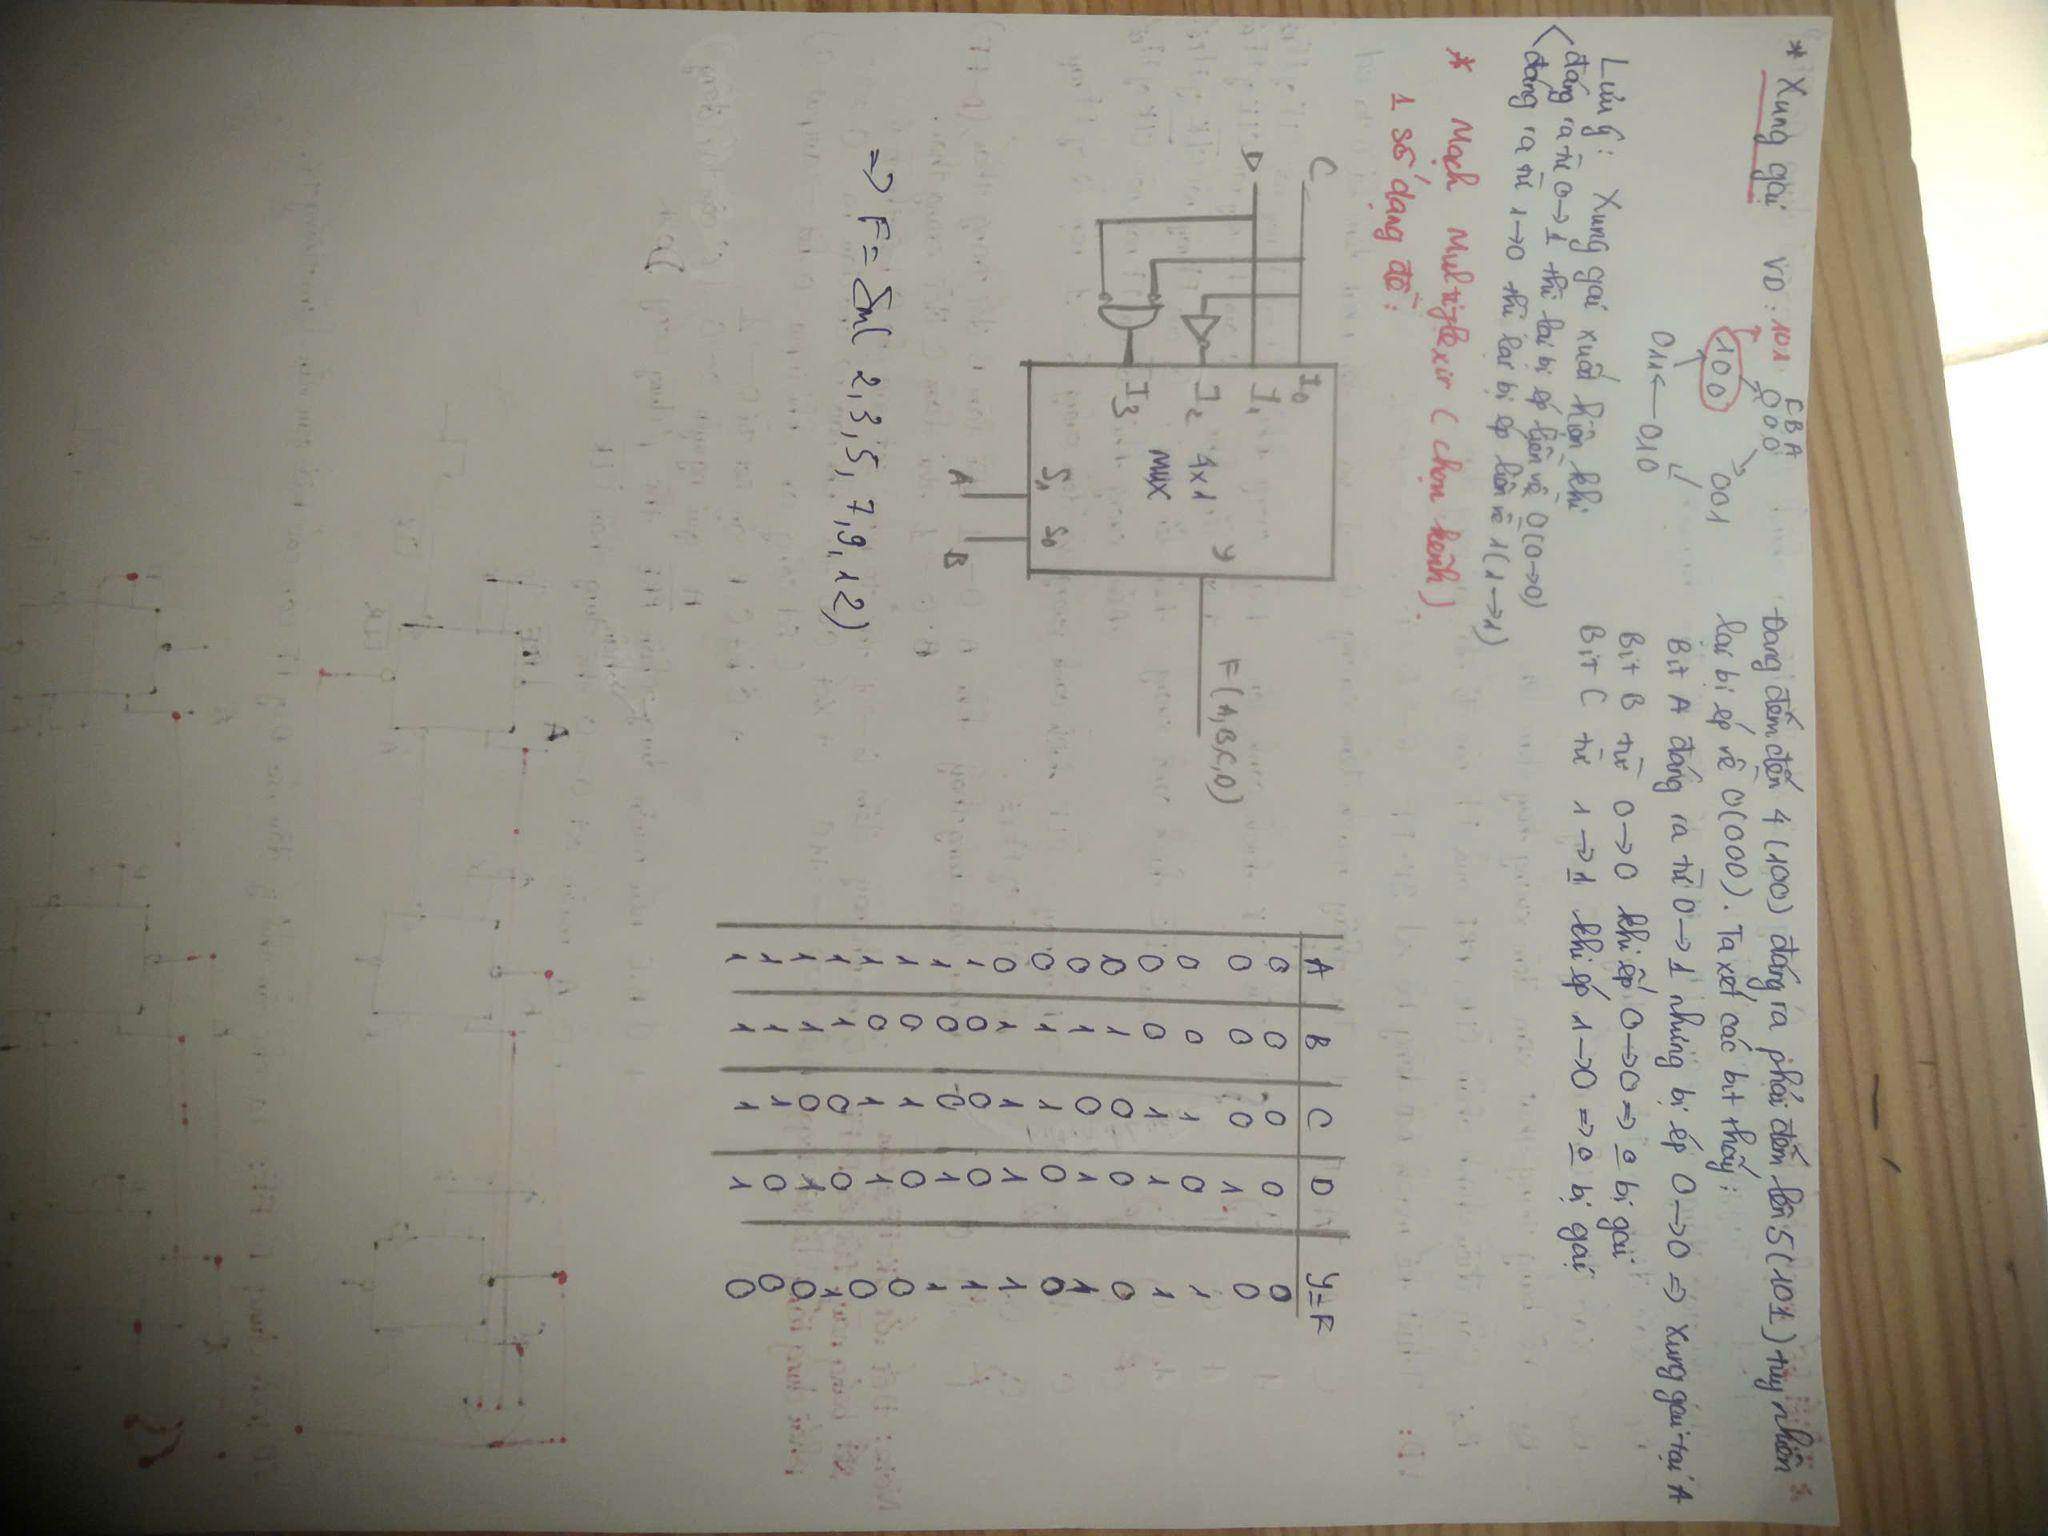 * Xung gai VD: 101
CBA
000
100
001
011 ← 010
Đang đếm đến 4 (100) đáng ra phải đếm lên 5 (101) tuy nhiên
lại bị ép về 0 (000). Ta xét các bit thấy:
Bit A đáng ra từ 0→1 nhưng bị ép 0→0 => xung gai tại A
Bit B từ 0→0 khi ép 0→0 => 0 bị gai
Bit C từ 1→1 khi ép 1→0 => 0 bị gai
Lưu ý: Xung gai xuất hiện khi
đáng ra từ 0→1 thì lại bị ép liền về 0 (0→0)
đáng ra từ 1→0 thì lại bị ép liền về 1 (1→1)
* Mạch Multiplexir (chọn kênh).
1 số dạng đề:
C
D
I0
I1
I2
I3
4x1
MUX
y
S1 S0
A B
F(A,B,C,D)
=> F = Σm( 2,3,5,7,9,12)
A B C D y=F
0 0 0 0 0
0 0 0 1 0
0 0 1 0 1
0 0 1 1 1
0 1 0 0 0
0 1 0 1 1
0 1 1 0 0
0 1 1 1 1
1 0 0 0 1
1 0 0 1 1
1 0 1 0 0
1 0 1 1 0
1 1 0 0 1
1 1 0 1 0
1 1 1 0 0
1 1 1 1 0